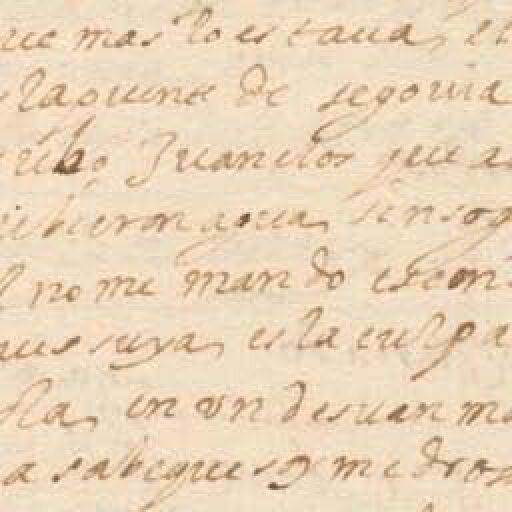 ue mas lo estaua, el
la puente de segouia
Juanelos que a
ubieron agua, sin sog
no me mando escon
ues suya, es la culpa
sla, en un desuan me
a sabe que soy medros